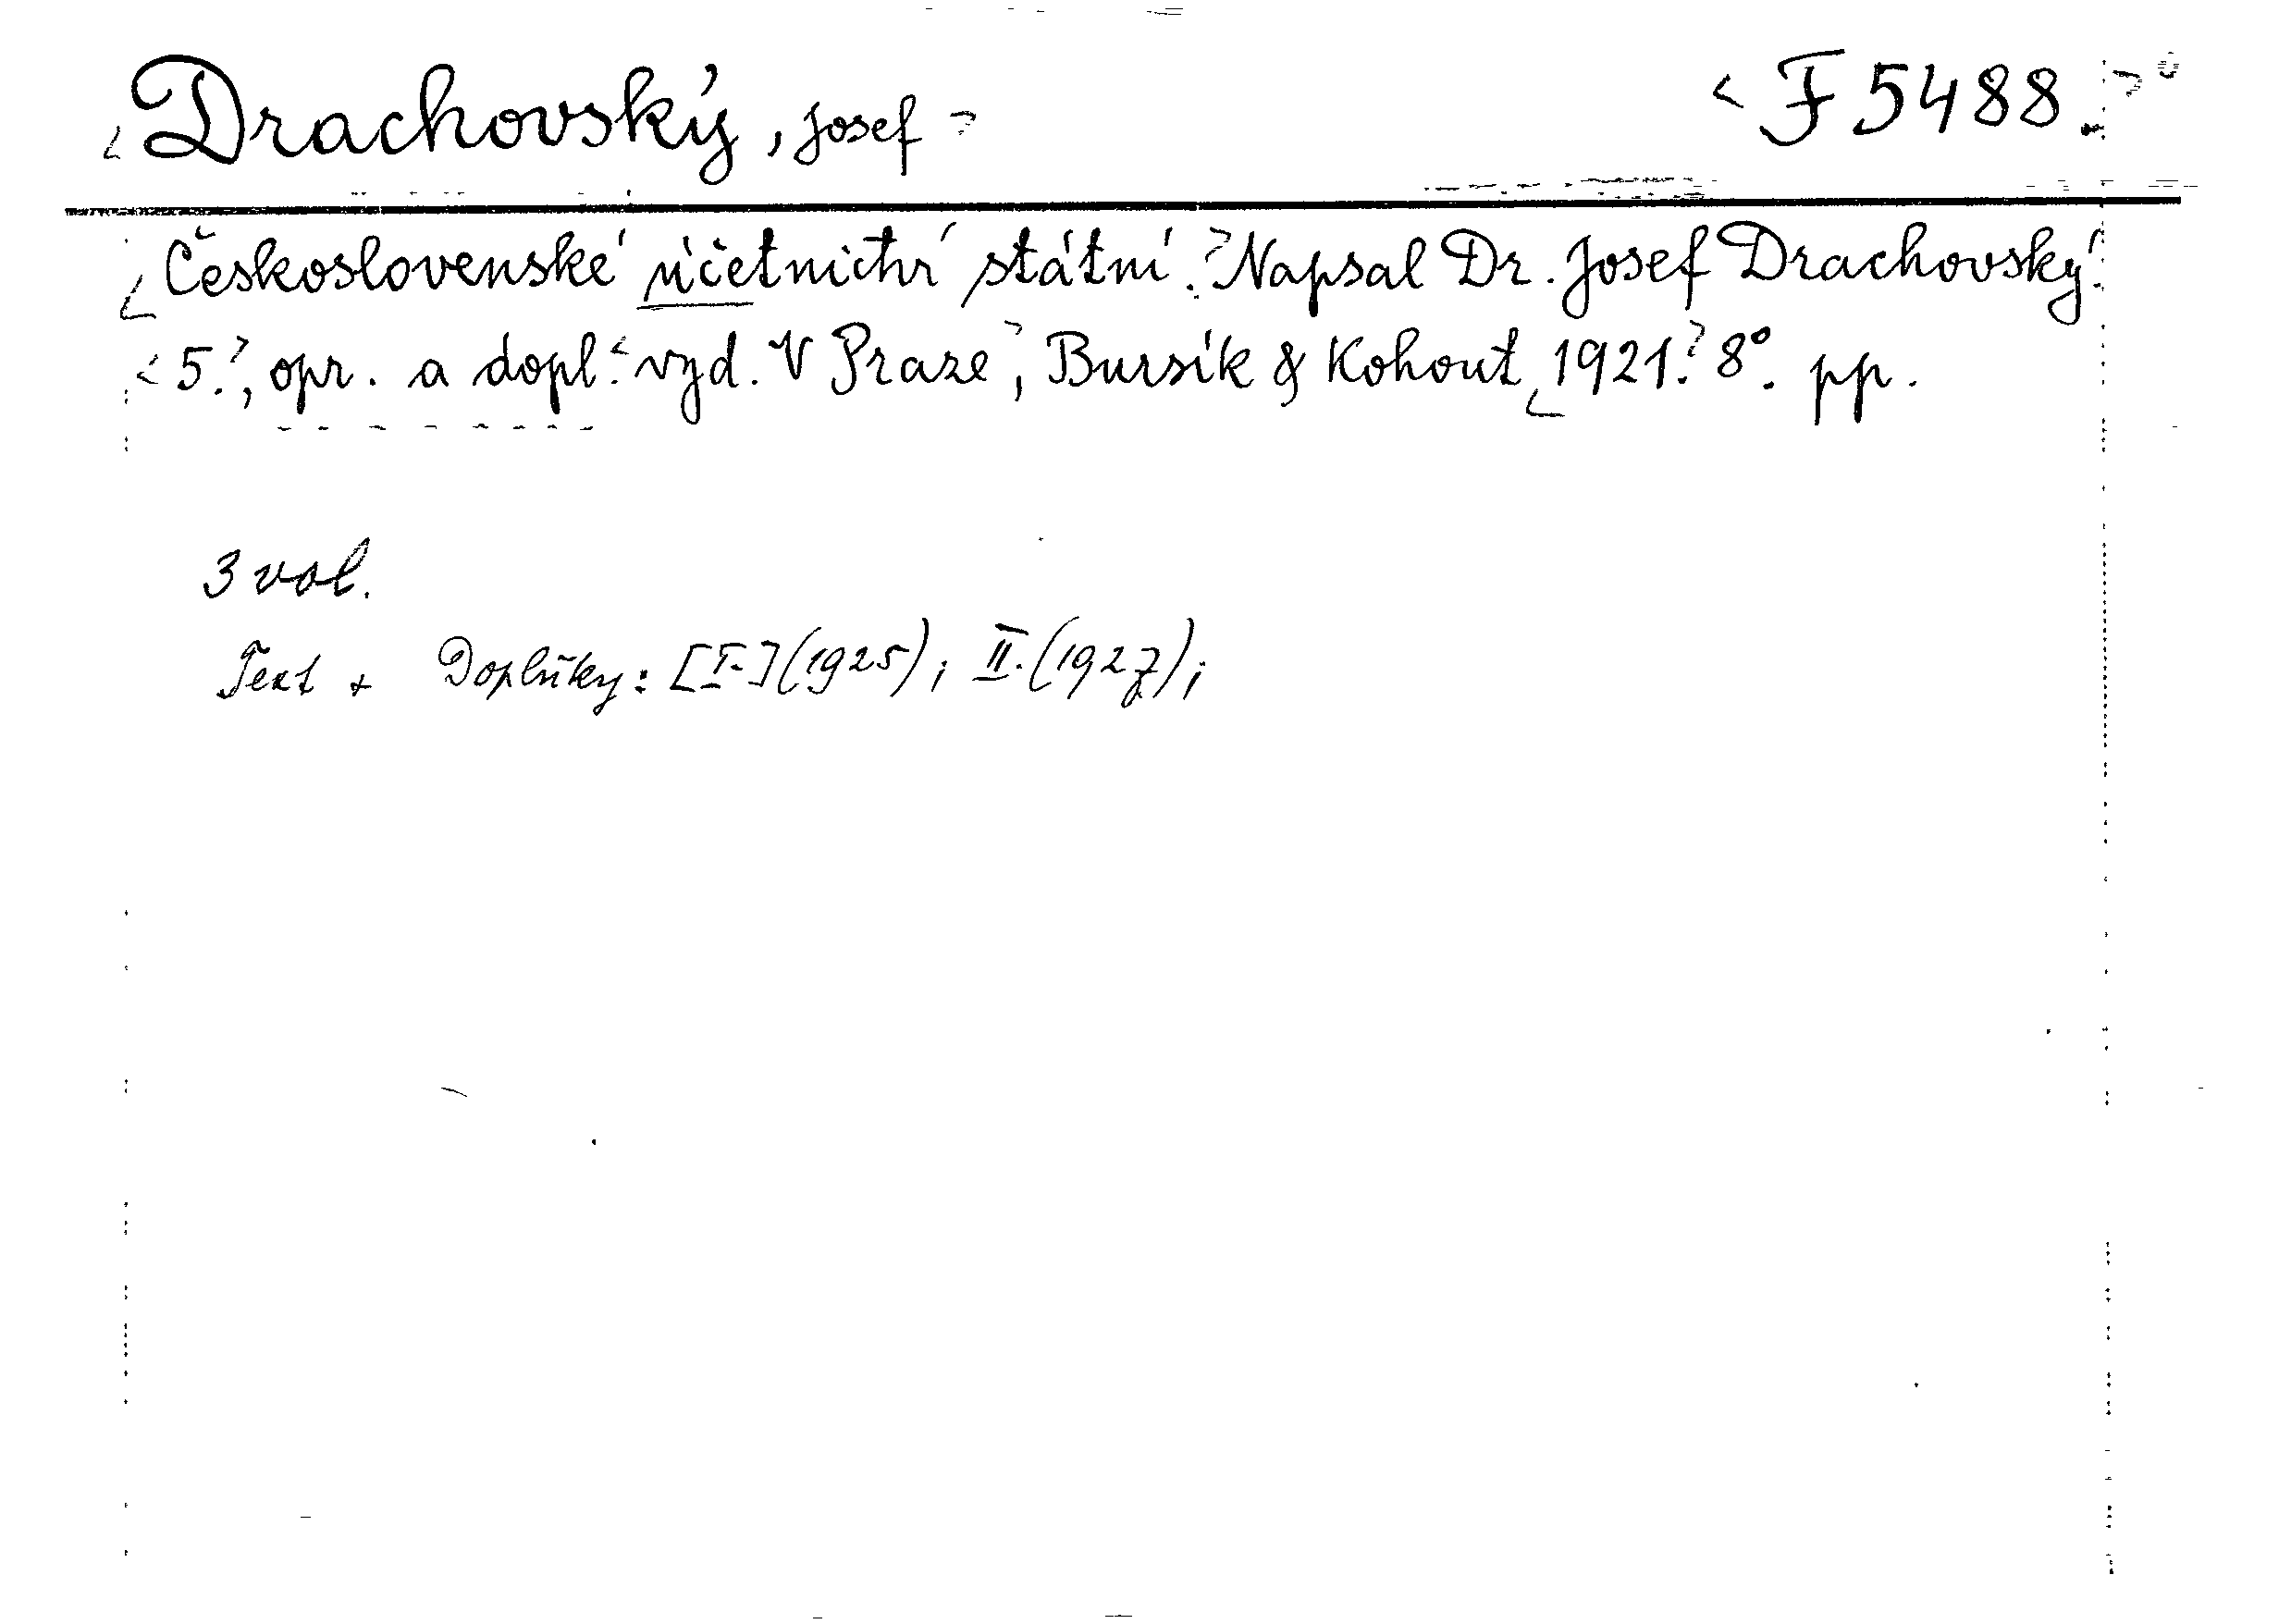 Drachovský, Josef F 5488.
Československé účetnictví státní. Napsal Dr. Josef Drachovský.
5., opr. a dopl. vyd. V Praze, Bursík & Kohout, 1921. 8°. pp.
3 vol.
Text + Doplňky: [I.] (1925); II. (1927);